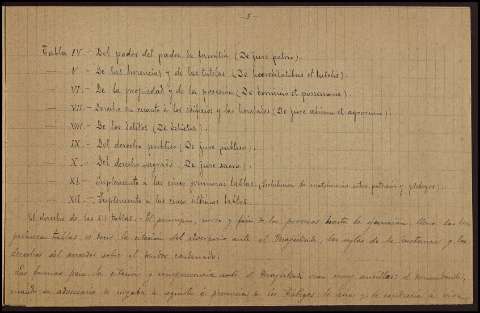 - 5 -
Tabla IV.- Del poder del padre de familia (De jure patrio).
— V.- De las herencias y de las tutelas (De hereditatibus et tutelis).
— VI.- De la propiedad y de la posesión (De dominio et possessione).
— VII.- Derecho en cuanto á los edificios y las heredades (De jure aedium et agrorum).
— VIII.- De los delitos (De delictis).
— IX.- Del derecho público (De jure publico).
— X.- Del derecho sagrado (De jure sacro).
— XI.- Suplemento á las cinco primeras tablas (Prohibición de matrimonio entre patricios y plebeyos).
— XII.- Suplemento á las cinco últimas tablas.
El derecho de las XII tablas.- El principio, curso y fin de los procesos hasta la ejecución, llena las tres
primeras tablas, es decir, la citación del adversario ante el Magistrado, las reglas de la instancia y los
derechos del acreedor sobre el deudor condenado.
Las formas para la citación y comparecencia ante el Magistrado eran muy sencillas; el demandante,
cuando su adversario se negaba á seguirle á presencia de los